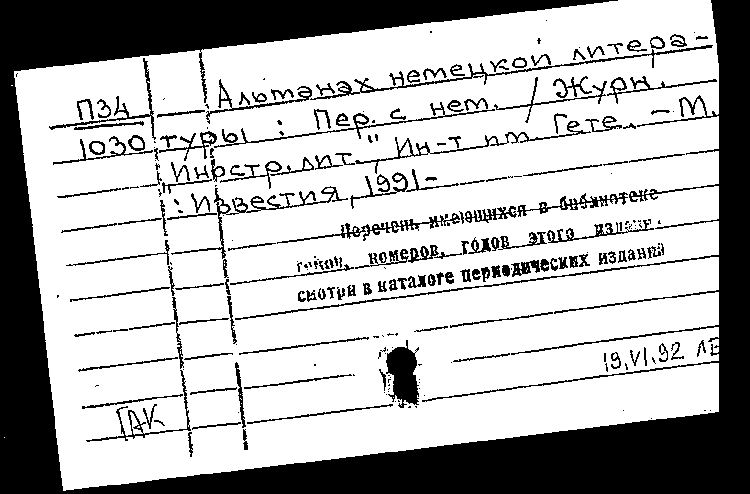 П34 Альманах немецкой литера-
1030 туры : Пер. с нем. / Журн.
"Иностр. лит.", Ин-т им. Гете. – М.
: Известия, 1991-
Перечень имеющихся в библиотеке
номеров, годов этого издани.
смотри в каталоге периодических изданий
19.VI.92
ГАК